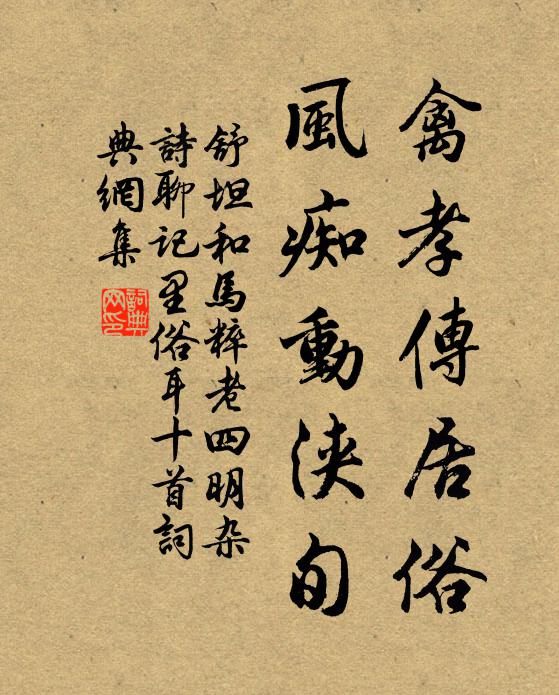 禽孝傳居俗
風痴動浹旬
舒坦和馬粹老四明杂
詩聊記里俗耳十首詞
典網集
詞典
网印